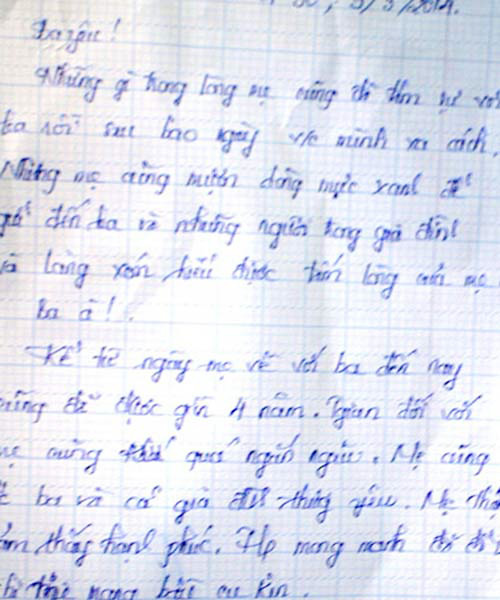 , 5/5/2014.
Ba yêu!
Những gì trong lòng mẹ cũng đã tâm sự với
ba rồi sau bao ngày v/c mình xa cách.
Nhưng mẹ cũng mượn dòng mực xanh để
gửi đến ba và những người trong gia đình
và làng xóm hiểu được tấm lòng của mẹ
Ba à!.
Kể từ ngày mẹ về với ba đến nay
cũng đã được gần 4 năm. gian đối với
mẹ cũng quá ngắn ngủi. Mẹ cũng
ba và cả gia đình thương yêu. Mẹ
thấy hạnh phúc. Hp mong manh đó